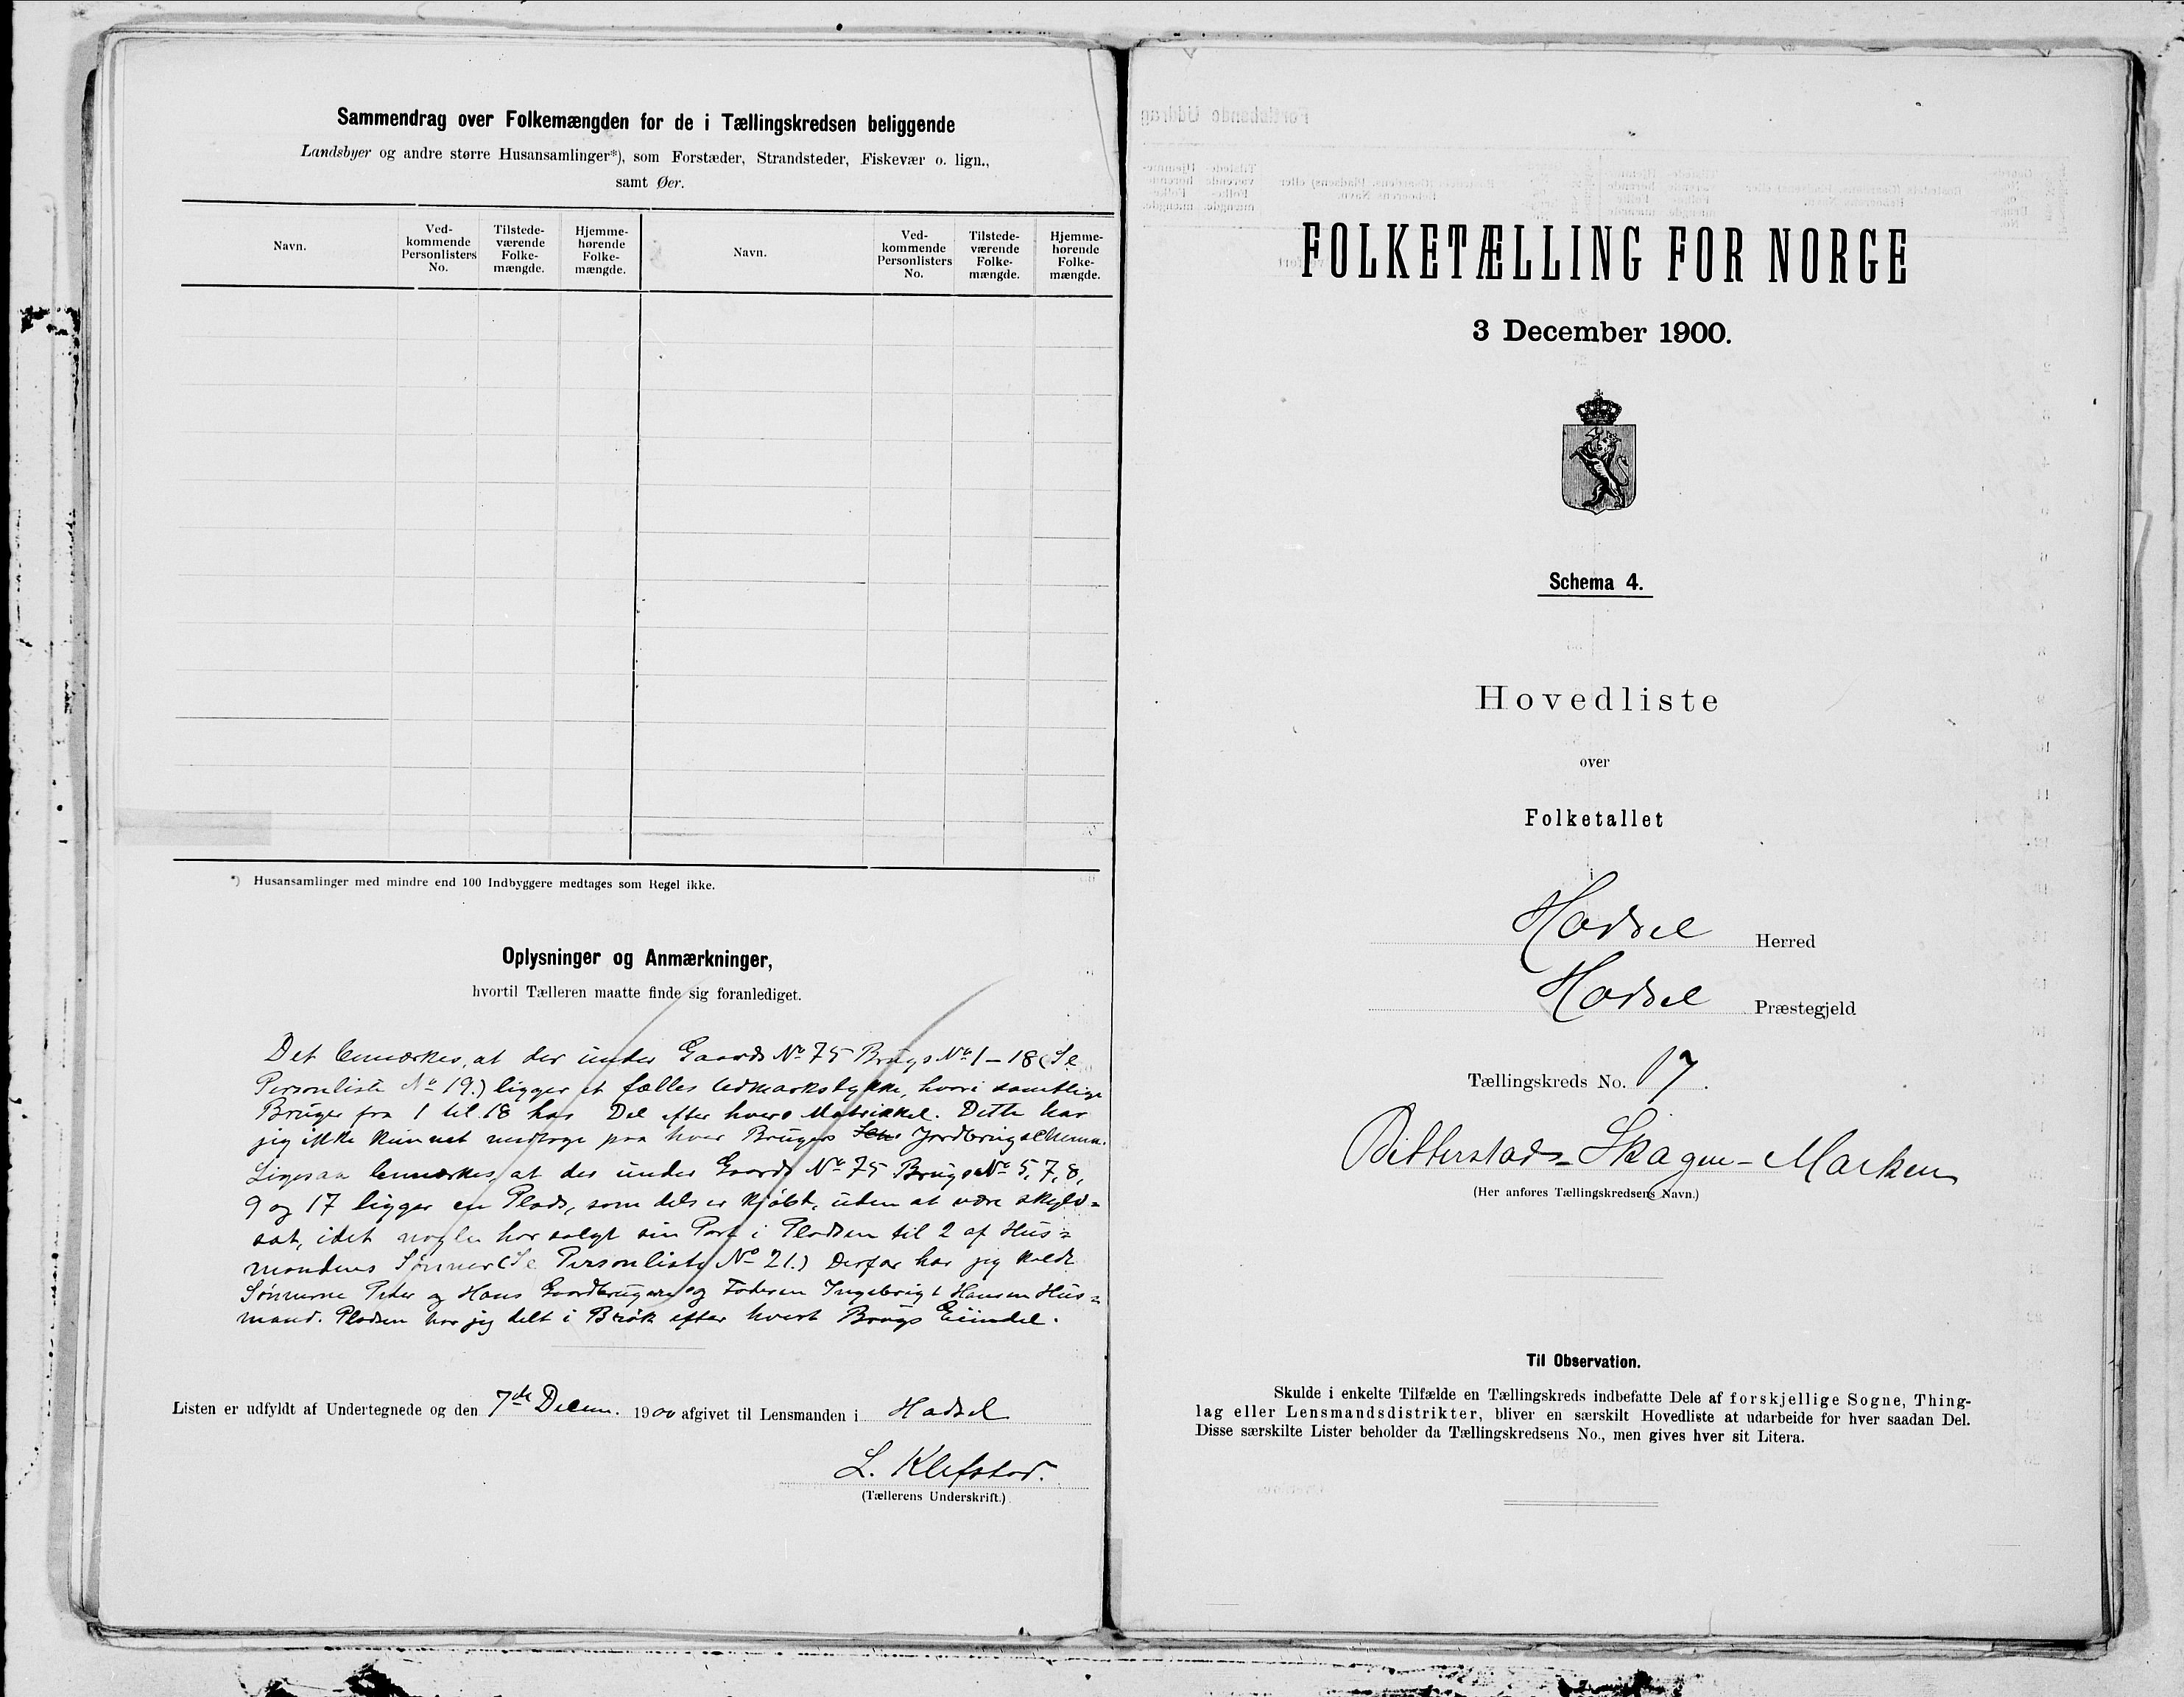 Sammendrag over Folkemængden for de i Tællingskredsen beliggende
Landsbyer og andre større Husansamlinger*), som Forstæder, Strandsteder, Fiskevær o. lign.,
samt Øer.
Navn.
Ved-
kommende
Personlisters
No.
Tilstede-
værende
Folke-
mængde.
Hjemme-
hørende
Folke-
mængde.
Navn.
Ved-
kommende
Personlisters
No.
Tilstede-
værende
Folke-
mængde.
Hjemme-
hørende
Folke-
mængde.
*) Husansamlinger med mindre end 100 Indbyggere medtages som Regel ikke.
Oplysninger og Anmærkninger,
hvortil Tælleren maatte finde sig foranlediget.
Det bemærkes, at der under Gaards No 75 Brugs No 1-18 (Se
Personliste No 19.) ligger et fælles Udmarkstykke, hvori samtlige
Bruger fra 1 til 18 har Del efter hvers Matrikkel. Dette har
jeg ikke kunnet medtage paa hver Brugers Jordbrugschema.
Ligesaa bemærkes, at der under Gaards No 75 Brugs No 5, 7, 8,
9 og 17 ligger en Plads, som dels er kjøbt, uden at være skyld=
sat, idet nogle har solgt sin Part i Pladsen til 2 af Hus=
mandens Sønner (Se Personliste No 21.) Derfor har jeg kaldt
Sønnerne Peter og Hans Gaardbrugere og Faderen Ingebrigt Hansen Hus=
mand. Pladsen har jeg delt i Brøk efter hvert Brugs Eiendel.
Listen er udfyldt af Undertegnede og den 7de Decem. 1900 afgivet til Lensmanden i Hadsel
L. Klefstad.
(Tællerens Underskrift.)
FOLKETÆLLING FOR NORGE
3 December 1900.
Schema 4.
Hovedliste
over
Folketallet
i
Hadsel Herred
Hadsel Præstegjeld
Tællingskreds No. 17.
Bitterstad-Skagen-Marken
(Her anføres Tællingskredsens Navn.)
Til Observation.
Skulde i enkelte Tilfælde en Tællingskreds indbefatte Dele af forskjellige Sogne, Thing-
lag eller Lensmandsdistrikter, bliver en særskilt Hovedliste at udarbeide for hver saadan Del.
Disse særskilte Lister beholder da Tællingskredsens No., men gives hver sit Litera.